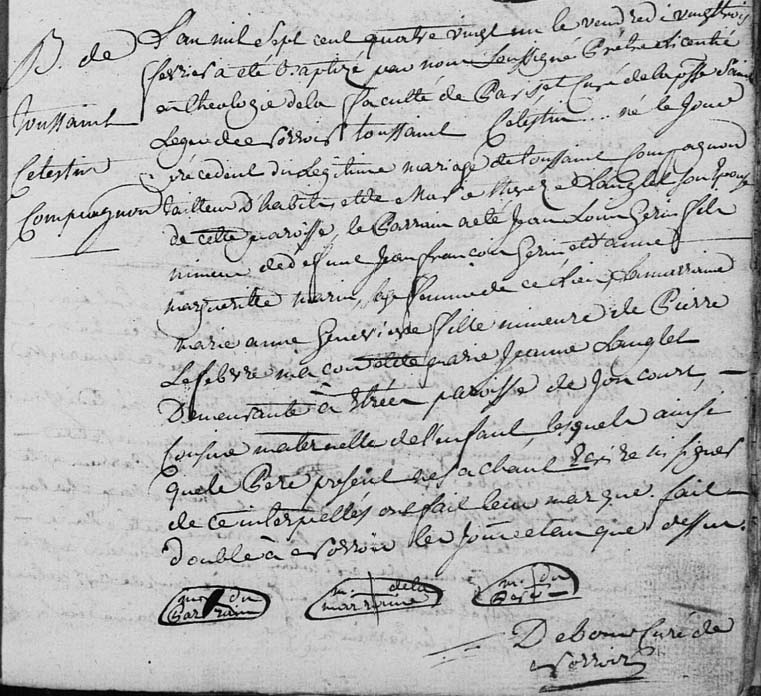 B. de
Toussaint
Celestin
Compagnon
L'an mil sept cent quatre vingt un le vendredi vingt trois
fevrier a été Baptizé par nous soussigné Prêtre licentié
en theologie de la faculté de Paris et Curé de la psse Saint
Leger de Toussaint Célestin ... né le Jour
précédent du Legitime mariage de toussaint Compagnon
tailleur D'habits et de Marie Langlet son Epouse
de cette paroisse, le Parrain a été Jean Louis Gerin fils
mineur de défunt Jean francois Gerin et d'anne
margueritte marin, sage femme de ce lieu, la marraine
marie anne Genevieve fille mineure de Pierre
Lefebvre maçon et de marie Jeanne Langlet
Demeurante à Etrée paroisse de Joncourt, —
Cousine maternelle de l'enfant, lesquels ainsi
que le Pere présent ne sachant Ecrire ni signer
de ce interpellés ont fait leur marque. fait
double à les Jour et an que dessus.
m. du Parrain
m. de la marraine
m. du Pere
Curé de